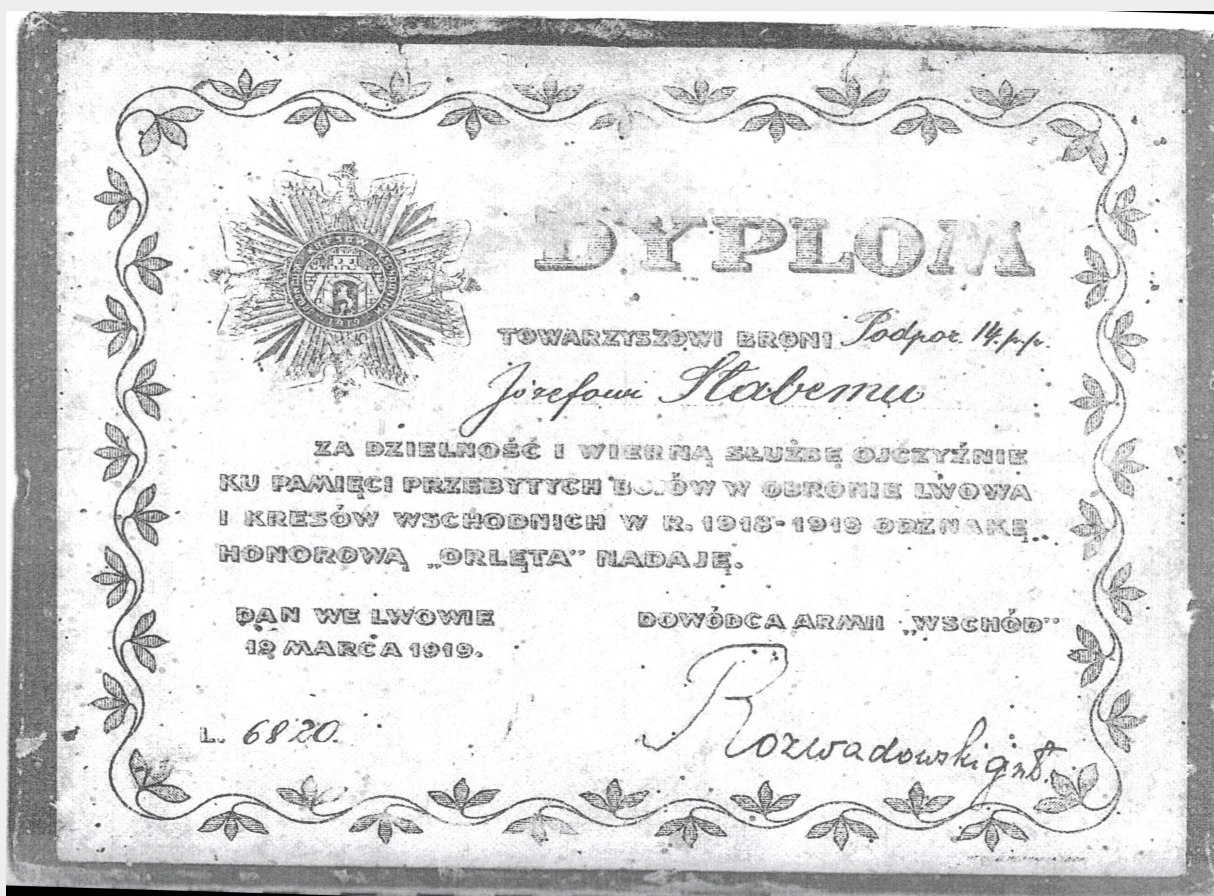 DYPLOM
TOWARZYSZOWI BRONI Podpor. 14. p.p.
Józefowi Stabemu
ZA DZIELNOŚĆ I WIERNĄ SŁUŻBĘ OJCZYŹNIE
KU PAMIĘCI PRZEBYTYCH BOJÓW W OBRONIE LWOWA
I KRESÓW WSCHODNICH W R. 1918-1919 ODZNAKĘ
HONOROWĄ „ORLĘTA” NADAJĘ.
DAN WE LWOWIE
19 MARCA 1919.
DOWÓDCA ARMII „WSCHÓD”
L. 6820.
Rozwadowski